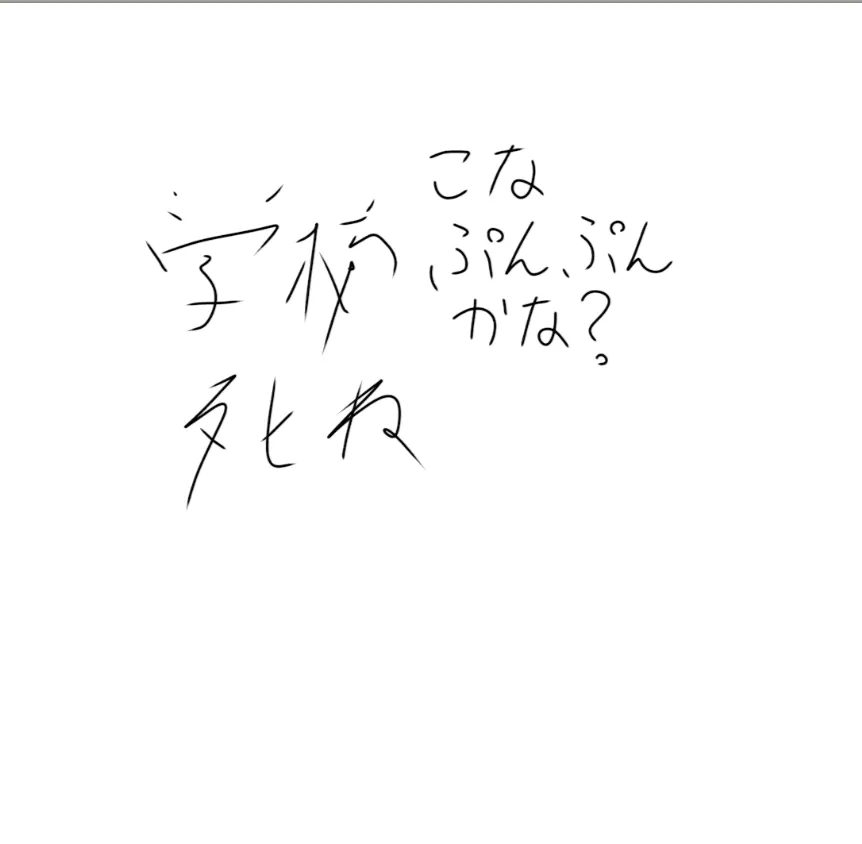 学校
死ね
こな
ぷんぷん
かな?